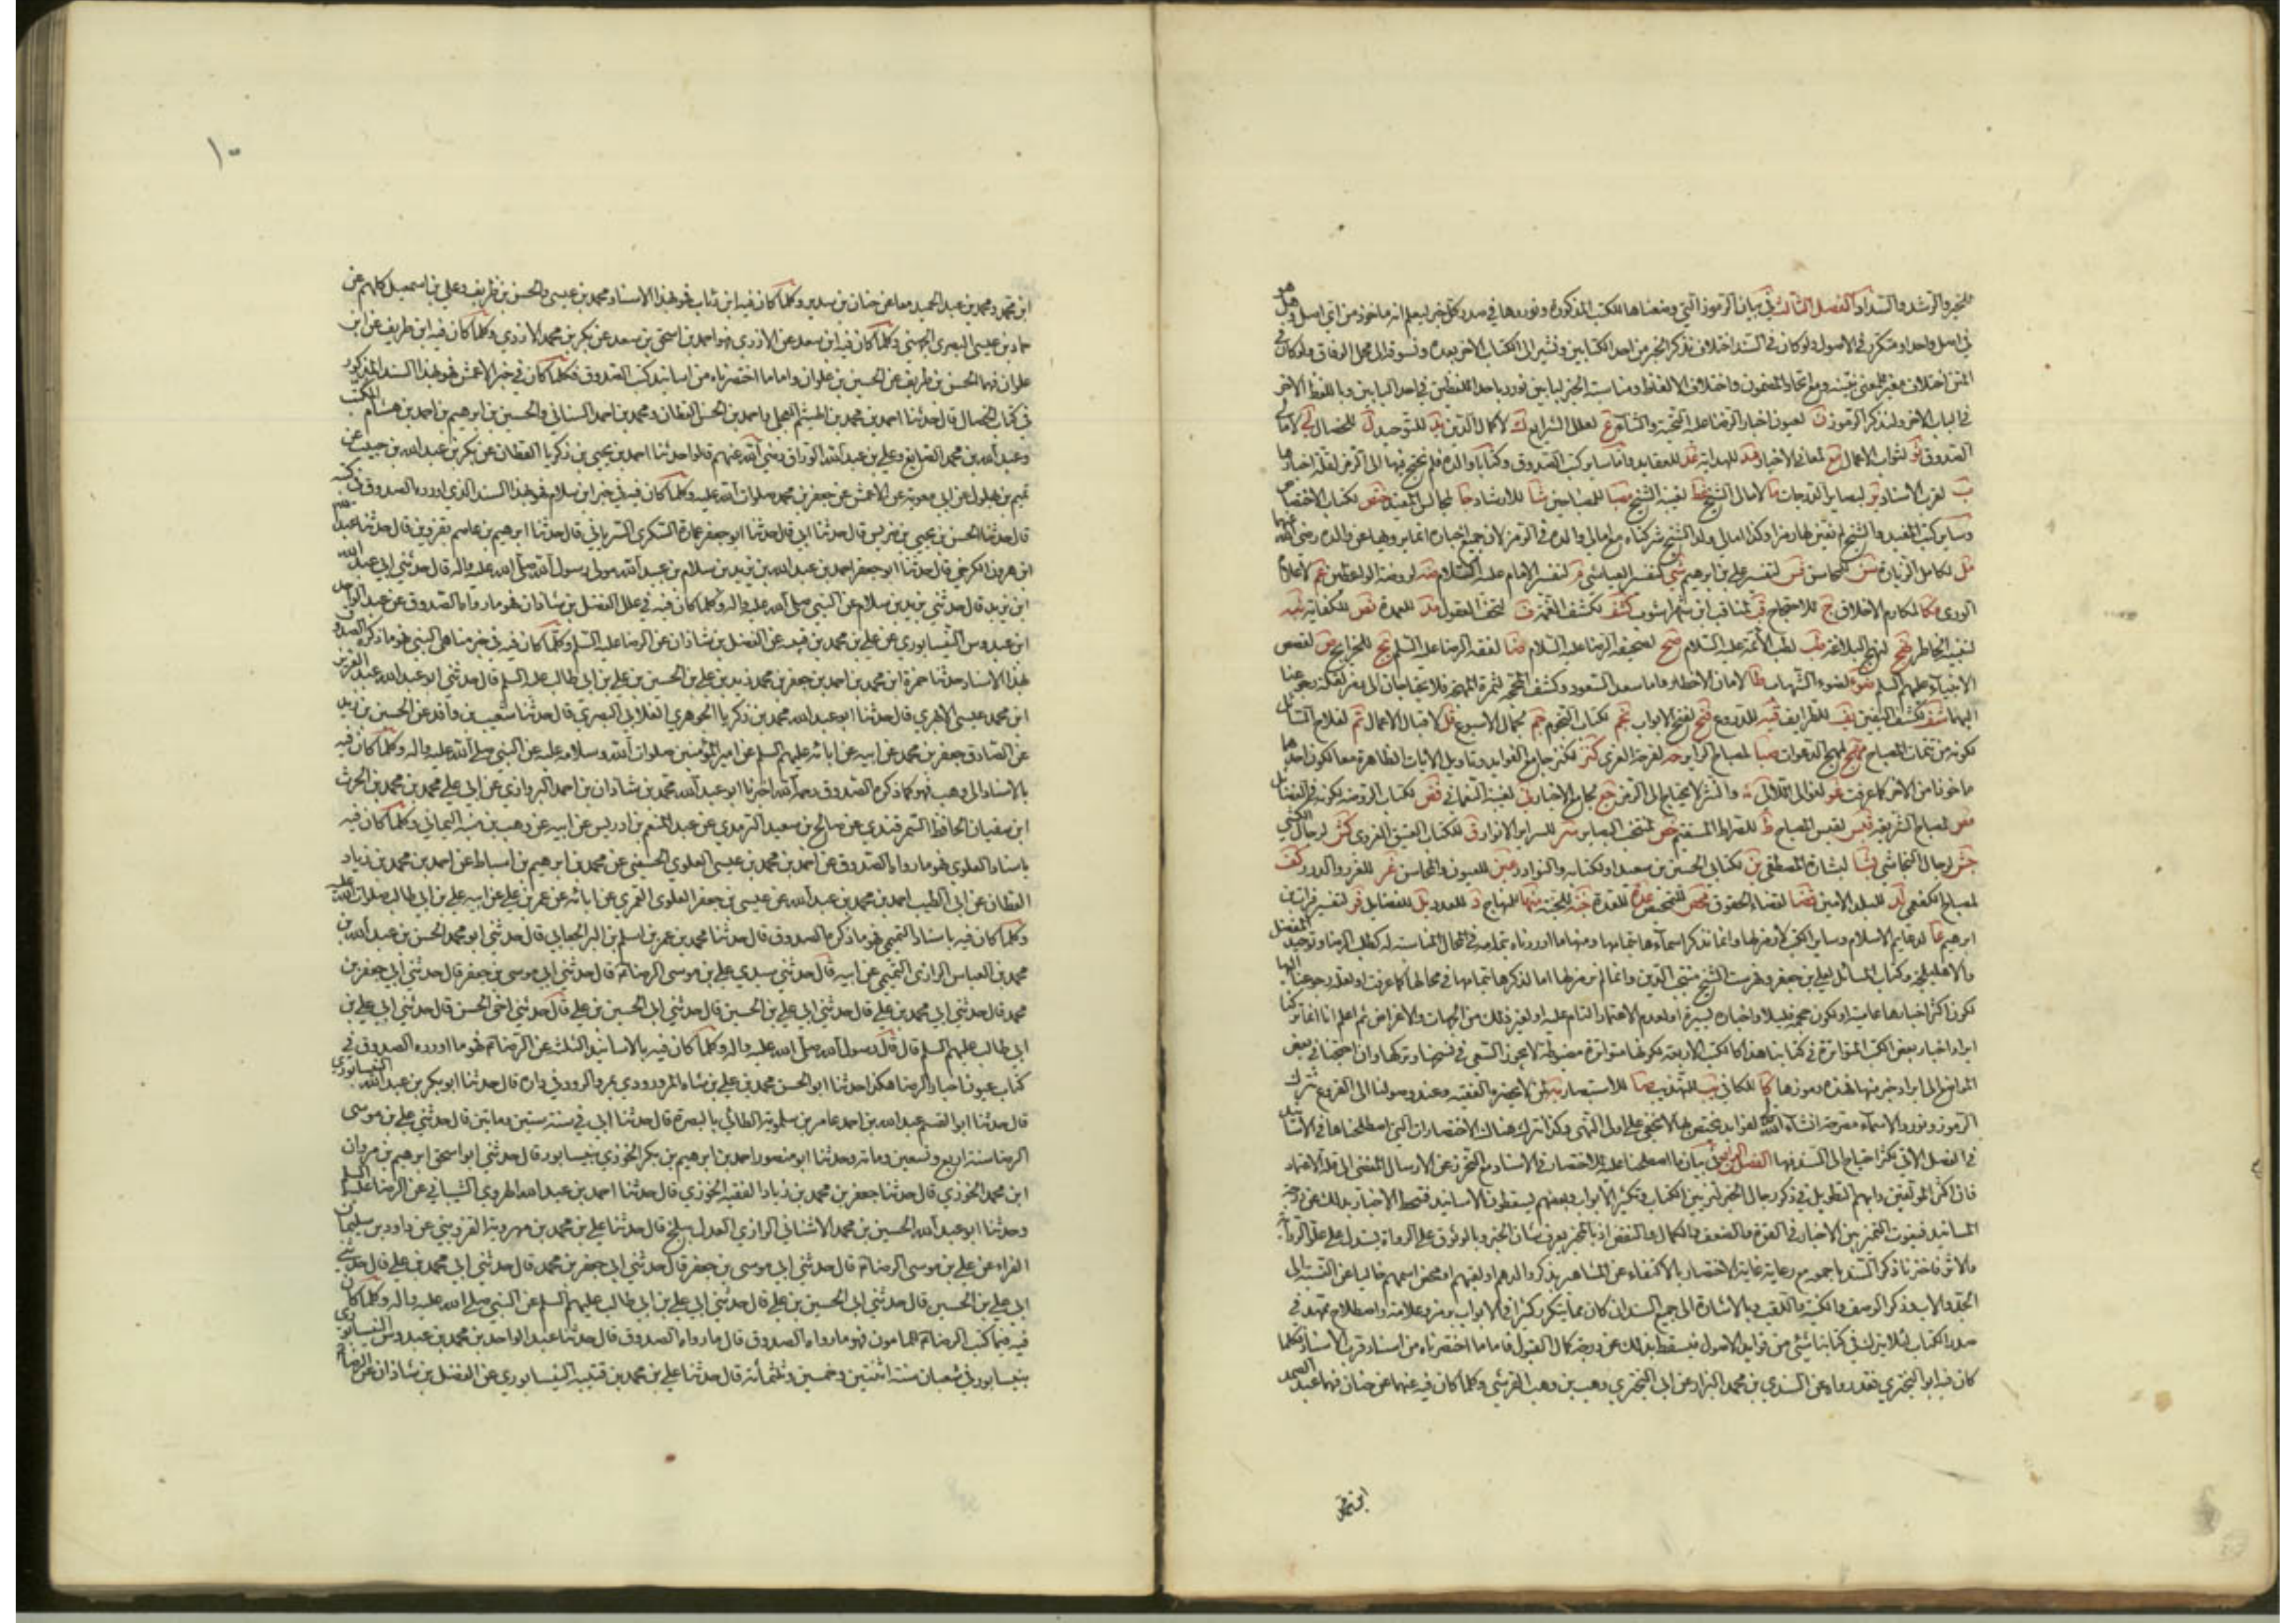 للخير والرشد والسداد الفصل الثالث في بيان الرموز التي وضعناها للكتب المذكورة ونوردها في صدر كل خبر ليعلم انه ماخوذ من اي اصل وهل هو
في اصل واحد او متكرر في الاصول ولو كان في السند اختلاف نذكر الخبر من احد الكتابين ونشير الى الكتاب الاخر بعده ونسوقه الى محل الوفاق ولو كان في
المتن اختلاف مغير للمعنى نبينه ومع اتحاد المضمون واختلاف الالفاظ ومناسبة الخبر لبابين نورد باحد اللفظين في احد البابين وباللفظ الاخر
في الباب الاخر ولنذكر الرموز ن لعيون اخبار الرضا عليه التحية والثنا ع لعلل الشرايع ك لاكمال الدين يد للتوحيد ل للخصال لي لامالي
الصدوق ثو لثواب الاعمال مع لمعاني الاخبار هد للهداية عد للعقايد واما ساير كتب الصدوق وكتابا والده فلم نحتج فيها الى الرمز لقلة اخبارها
ب لقرب الاسناد ير لبصاير الدرجات ما لامالي الشيخ غط لغيبة الشيخ مصبا للمصباحين شا للارشاد جا لمجالس المفيد ختص لكتاب الاختصاص
وساير كتب المفيد والشيخ لم نعين لها رمزا وكذا امالي ولد الشيخ شركناه مع امالي والده في الرمز لان جميع اخباره انما يرويها عن والده رضي الله عنهما
مل لكامل الزيارة سن للمحاسن فس لتفسير علي بن ابرهيم شي لتفسير العياشي م لتفسير الامام عليه السلام ضه لروضة الواعظين عم لاعلام
الورى مكا لمكارم الاخلاق ج للاحتجاج قب لمناقب ابن شهراشوب كشف لكشف الغمة ف لتحف العقول مد للعمدة نص للكفاية نبه
لتنبيه الخاطر نهج لنهج البلاغة طب لطب الائمة عليه السلام صح لصحيفة الرضا عليه السلام ضا لفقه الرضا عليه السلم يج للخرايج ص لقصص
الانبياء عليهم السلم ضوء لضوء الشهاب طا لامان الاخطار واما سعد السعود وكشف المحجة لثمرة المهجة فلا يحتاجان الى رمز لقلة رجوعنا
اليهما شف لكشف اليقين يف للطرايف قيه للدروع فتح لفتح الابواب نجم لكتاب النجوم جم لجمال الاسبوع قل لاقبال الاعمال تم لفلاح السائل
لكونه من تتمات المصباح مهج لمهج الدعوات صبا لمصباح الزاير حه لفرحة الغري كنز لكنز جامع الفوايد وتاويل الايات الظاهرة معا لكون احدهما
ماخوذا من الاخر كما عرفت غو لغوالي اللئالي والنثر لا يحتاج الى الرمز جع لجامع الاخبار ني لغيبة النعماني فض لكتاب الروضة لكونه في الفضائل
مص لمصباح الشريعة قبس لقبس المصباح ط للصراط المستقيم خص لمنتخب البصاير سر للسراير ق للكتاب العتيق الغروي كش لرجال الكشي
جش لرجال النجاشي بشا لبشارة المصطفى ين لكتابي الحسين بن سعيد او لكتابه والنوادر عين للعيون والمحاسن غر للغرر والدرر كف
لمصباح الكفعمي لد للبلد الامين قضا لقضاء الحقوق محص للتمحيص عده للعدة جنة للجنة منها للمنهاج د للعدد يل للفضايل فر لتفسير فرات بن
ابرهيم عا لدعايم الاسلام وساير الكتب لا رمز لها وانما نذكر اسماءها بتمامها ومنها ما اوردناه بتمامه في المحال المناسبة له كطب الرضا وتوحيد المفضل
والاهليلجة وكتاب المسائل لعلي بن جعفر وفهرست الشيخ منتجب الدين وانما لم نرمز لها اما لذكرها بتمامها في محالها كما عرفت او لقلة رجوعنا اليها
لكون اكثر اخبارها عامية او لكون حجمه قليلا واخباره يسيرة او لعدم الاعتماد التام عليه او لغير ذلك من الجهات والاغراض ثم اعلم انا انما تركنا
ايراد اخبار بعض الكتب المتواترة في كتابنا هذا كالكتب الاربعة لكونها متواترة مضبوطة لا يجوز السعي في نسخها وتركها وان احتجنا في بعض
المواضع الى ايراد خبر منها فهذه رموزها كا للكافي يب للتهذيب صا للاستبصار يه لمن لا يحضره الفقيه وعند وصولنا الى الفروع نترك
الرموز ونورد الاسماء مصرحة انشاء الله تع لفوايد تختص بها لا تخفى على اولي النهى وكذا نترك هناك الاختصارات التي اصطلحناها في الاسانيد
في الفصل الاتي لكثرة احتياج الى السند فيها الفصل الرابع في بيان ما اصطلحنا عليه للاختصار في الاسناد مع التحرز عن الارسال المفضي الى قلة الاعتماد
فان اكثر المؤلفين دابهم التطويل في ذكر رجال الخبر لتزيين الكتاب وتكثير الابواب وبعضهم يسقطون الاسانيد فتنحط الاخبار بذلك عن درجة
المسانيد فيفوت التميز بين الاخبار في القوة والضعف والكمال والنقص اذ بالمخبر يعرف شان الخبر وبالوثوق على الرواة يستدل على علو الرواية
والاثر فاخترنا ذكر السند باجمعه مع رعاية غاية الاختصار بالاكتفاء عن المشاهير بذكر والدهم او لقبهم او محض اسمهم خاليا عن النسبة الى
الجد والاب وذكر الوصف والكنية واللقب وبالاشارة الى جميع السند ان كان مما يتكرر كثيرا في الابواب برمز وعلامة واصطلاح ممهد في
صدر الكتاب لئلا يترك في كتابنا شئ من فوايد الاصول فيسقط بذلك عن درجة كمال القبول فاما ما اختصرناه من اسناد قرب الاسناد فكلما
كان فيه ابو البختري فقد رواه عن السندي بن محمد البزاز عن ابي البختري وهب بن وهب القرشي وكلما كان فيه عنهما عن حنان فهما عبد الصمد
ابن محمد
١٠
ابن محمد ومحمد بن عبد الحميد معا عن حنان بن سدير وكلما كان فيه ابن رئاب فهو بهذا الاسناد ومحمد بن عيسى والحسن بن ظريف وعلي بن اسمعيل كلهم عن
حماد بن عيسى البصري الجهني وكلما كان فيه ابن سعد عن الازدي فهو احمد بن اسحق بن سعد عن بكر بن محمد الازدي وكلما كان فيه ابن ظريف عن ابن
علوان فهما الحسن بن ظريف عن الحسين بن علوان واما ما اختصرناه من اسانيد كتب الصدوق فكلما كان في خبر الاعمش فهو بهذا السند المذكور
في كتاب الخصال قال حدثنا احمد بن محمد بن الهيثم العجلي واحمد بن الحسن القطان ومحمد بن احمد السناني والحسين بن ابرهيم بن احمد بن هشام المكتب
وعبد الله بن محمد الصايغ وعلي بن عبد الله الوراق رضي الله عنهم قالوا حدثنا احمد بن يحيى بن زكريا القطان عن بكر بن عبد الله بن حبيب عن
تميم بن بهلول عن ابي معوية عن الاعمش عن جعفر بن محمد صلوات الله عليه وكلما كان فيه في خبر ابن سلام فهو بهذا السند الذي اورده الصدوق في كتبه
قال حدثنا الحسن بن يحيى بن ضريس قال حدثنا ابي قال حدثنا ابو جعفر عمارة السكري السرياني قال حدثنا ابرهيم بن عاصم بقزوين قال حدثنا عبد الله
ابن هرون الكرخي قال حدثنا ابو جعفر احمد بن عبد الله بن يزيد بن سلام بن عبيد الله مولى رسول الله صلى الله عليه واله قال حدثني ابي عبد الله
ابن يزيد قال حدثني يزيد بن سلام عن النبي صلى الله عليه واله وكلما كان فيه في علل الفضل بن شاذان فهو ما رواه الصدوق عن عبد الواحد
ابن عبدوس النيسابوري عن علي بن محمد بن قتيبه عن الفضل بن شاذان عن الرضا عليه السلم وكلما كان فيه في خبر مناهي النبي فهو ما ذكره الصدوق
بهذا الاسناد حدثنا حمزة ابن محمد بن احمد بن جعفر بن محمد بن زيد بن علي بن الحسين بن علي بن ابي طالب عليه السلم قال حدثني ابو عبد الله عبد العزيز
ابن محمد بن عيسى الابهري قال حدثنا ابو عبد الله محمد بن زكريا الجوهري الغلابي البصري قال حدثنا شعيب بن واقد عن الحسين بن زيد
عن الصادق جعفر بن محمد عن ابيه عن ابائه عليهم السلم عن امير المؤمنين صلوات الله وسلامه عليه عن النبي صلى الله عليه واله وكلما كان فيه
بالاسناد الى وهب فهو كما ذكره الصدوق رحمه الله اخبرنا ابو عبد الله محمد بن شاذان بن احمد البرواذي عن ابي علي محمد بن محمد بن الحرث
ابن سفيان الحافظ السمرقندي عن صالح بن سعيد الترمذي عن عبد المنعم بن ادريس عن ابيه عن وهب بن منبه اليماني وكلما كان فيه
باسناد العلوي فهو ما رواه الصدوق عن احمد بن محمد بن عيسى العلوي الحسيني عن محمد بن ابرهيم بن اسباط عن احمد بن محمد بن زياد
القطان عن ابي الطيب احمد بن محمد بن عبد الله عن عيسى بن جعفر العلوي العمري عن ابائه عن عمر بن علي عن ابيه علي بن ابي طالب صلوات الله عليه
وكلما كان فيه باسناد التميمي فهو ما ذكره الصدوق قال حدثنا محمد بن عمر بن اسلم بن البر الجعابي قال حدثني ابو محمد الحسن بن عبد الله بن
محمد بن العباس الرازي التميمي عن ابيه قال حدثني سيدي علي بن موسى الرضا ع قال حدثني ابي موسى بن جعفر قال حدثني ابي جعفر بن
محمد قال حدثني ابي محمد بن علي قال حدثني ابي علي بن الحسين قال حدثني ابي الحسين بن علي قال حدثني اخي الحسن قال حدثني ابي علي بن
ابي طالب عليهم السلم قال قال رسول الله صلى الله عليه واله وكلما كان فيه بالاسانيد الثلث عن الرضا ع فهو ما اورده الصدوق في
كتاب عيون اخبار الرضا هكذا حدثنا ابو الحسن محمد بن علي بن شاه المرورودي بمرو الرود في داره قال حدثنا ابو بكر بن عبد الله النيسابوري
قال حدثنا ابو القسم عبد الله بن احمد عامر بن سلموية الطائي بالبصرة قال حدثنا ابي في سنة ستين ومايتين قال حدثني علي بن موسى
الرضا سنة اربع وتسعين ومائة وحدثنا ابو منصور احمد بن ابرهيم بن بكر الخوزي بنيسابور قال حدثني ابو اسحق ابرهيم بن مروان
ابن محمد الخوزي قال حدثنا جعفر بن محمد بن زياد الفقيه الخوزي قال حدثنا احمد بن عبد الله الهروي الشيباني عن الرضا عليه السلم
وحدثنا ابو عبد الله الحسين بن محمد الاشناني الرازي العدل ببلخ قال حدثنا علي بن محمد بن مهروية القزويني عن داود بن سليمان
الفراء عن علي بن موسى الرضا ع قال حدثني ابي موسى بن جعفر قال حدثني ابي جعفر بن محمد قال حدثني ابي محمد بن علي قال حدثني
ابي علي بن الحسين قال حدثني ابي الحسين بن علي قال حدثني ابي علي بن ابي طالب عليهم السلم عن النبي صلى الله عليه واله وكلما كان
فيه فيما كتب الرضا ع للمامون فهو ما رواه الصدوق قال ما رواه الصدوق قال حدثنا عبد الواحد بن محمد بن عبدوس النيسابوري
بنيسابور في شعبان سنة اثنتين وخمسين وثلثمائة قال حدثنا علي بن محمد بن قتيبة النيسابوري عن الفضل بن شاذان عن الرضا ع